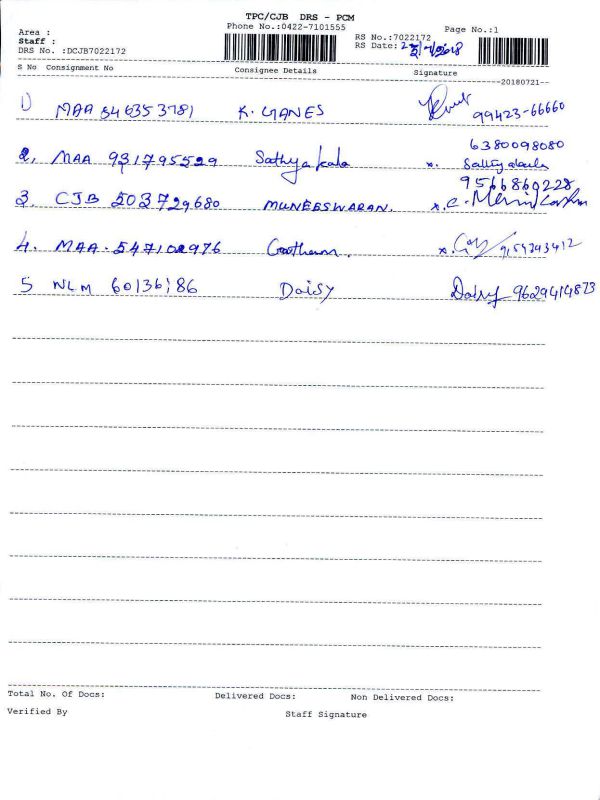 TPC/CJB DRS - PCM
Phone No.:0422-7101555
Page No.:1
Area :
Staff :
DRS No. :DCJB7022172
RS No.:7022172
RS Date:
S No Consignment No Consignee Details Signature
--20180721--
1) MAA 546353781 K. GANES 99423-66660
6380098080
2. MAA 931795529 Sathya kala x. Sathyakala
9566860228
3. CJB 503729680 MUNEESWARAN. x.
4. MAA. 547102976 Gootham. x. 9154293412
5 NLM 60136186 Daisy Daisy 9629414873
Total No. Of Docs: Delivered Docs: Non Delivered Docs:
Verified By Staff Signature